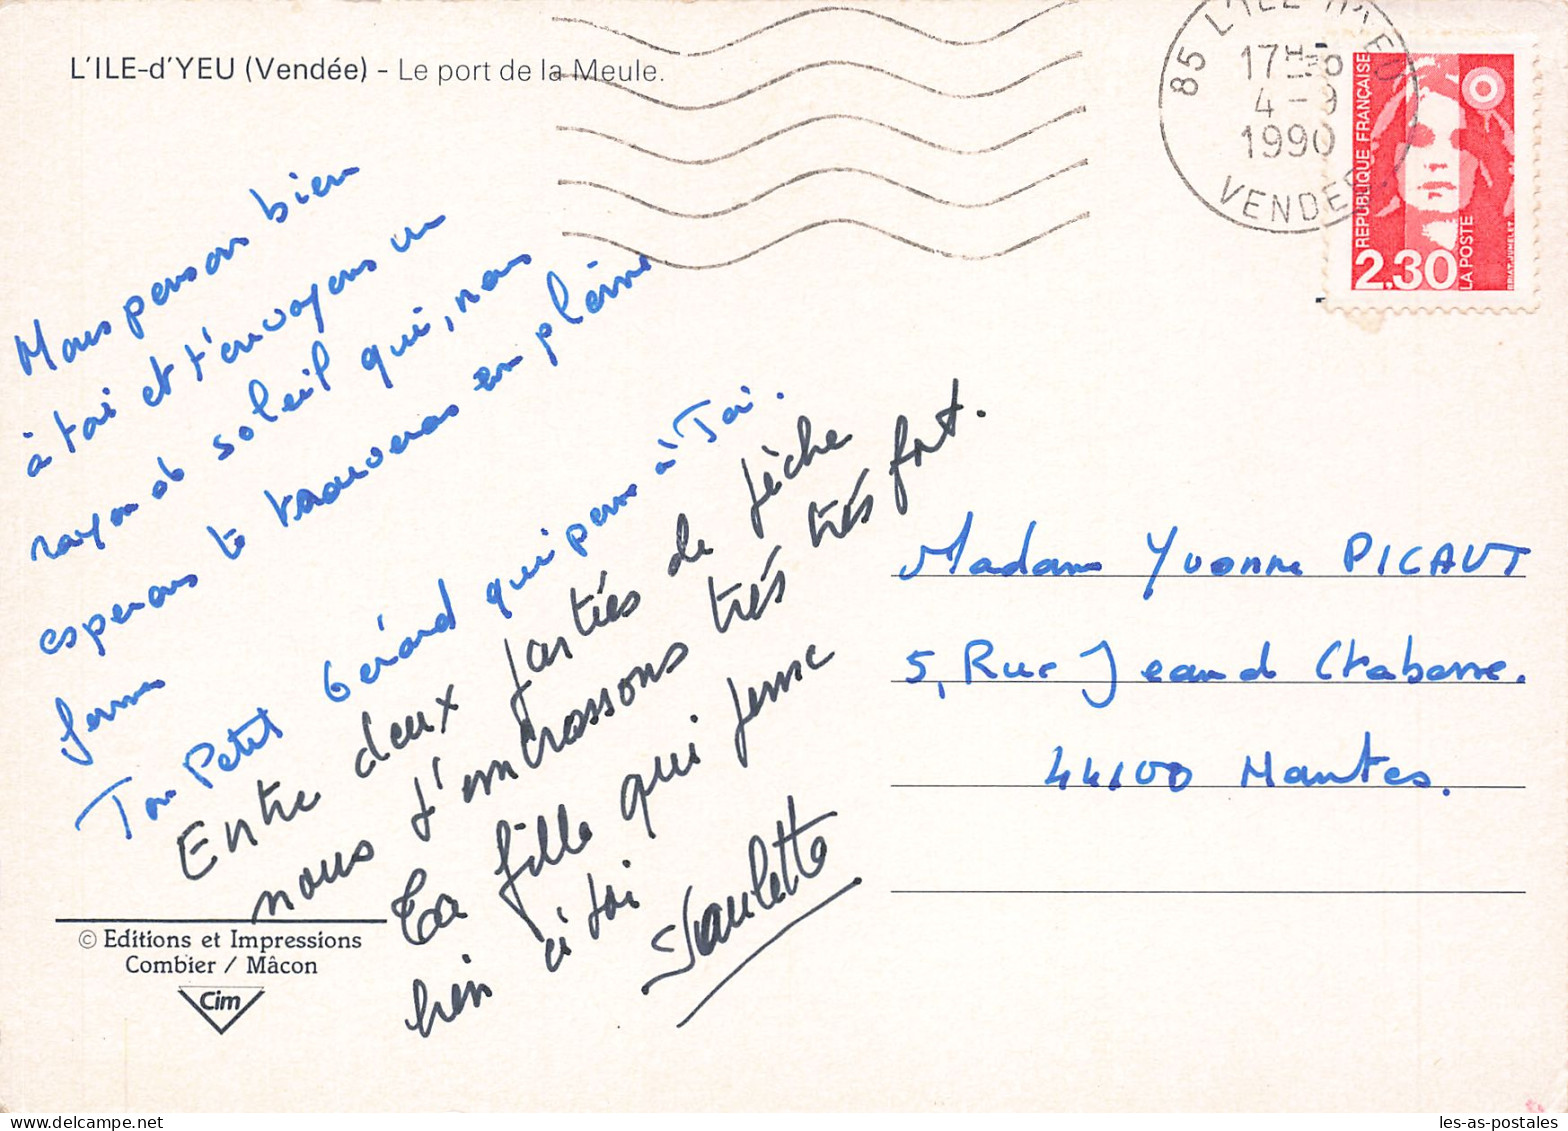 L'ILE-d'YEU (Vendée) - Le port de la Meule.
85 L'ILE D'YEU
17H
4 - 9
1990
VENDEE
REPUBLIQUE FRANÇAISE
2,30
LA POSTE
BRIAT-JUMELET
Nous pensons bien
à toi et t'envoyons un
rayon de soleil qui, nous
esperons te trouveras en pleine
forme
Ton Petit Gérard qui pense à Toi.
Entre deux parties de pêche
nous t'embrassons très très très fort.
Ta fille qui pense
bien à toi
Paulette
Madame Yvonne PICAUT
5, Rue Jean
44100 Nantes.
© Editions et Impressions
Combier / Mâcon
Cim
les-as-postales